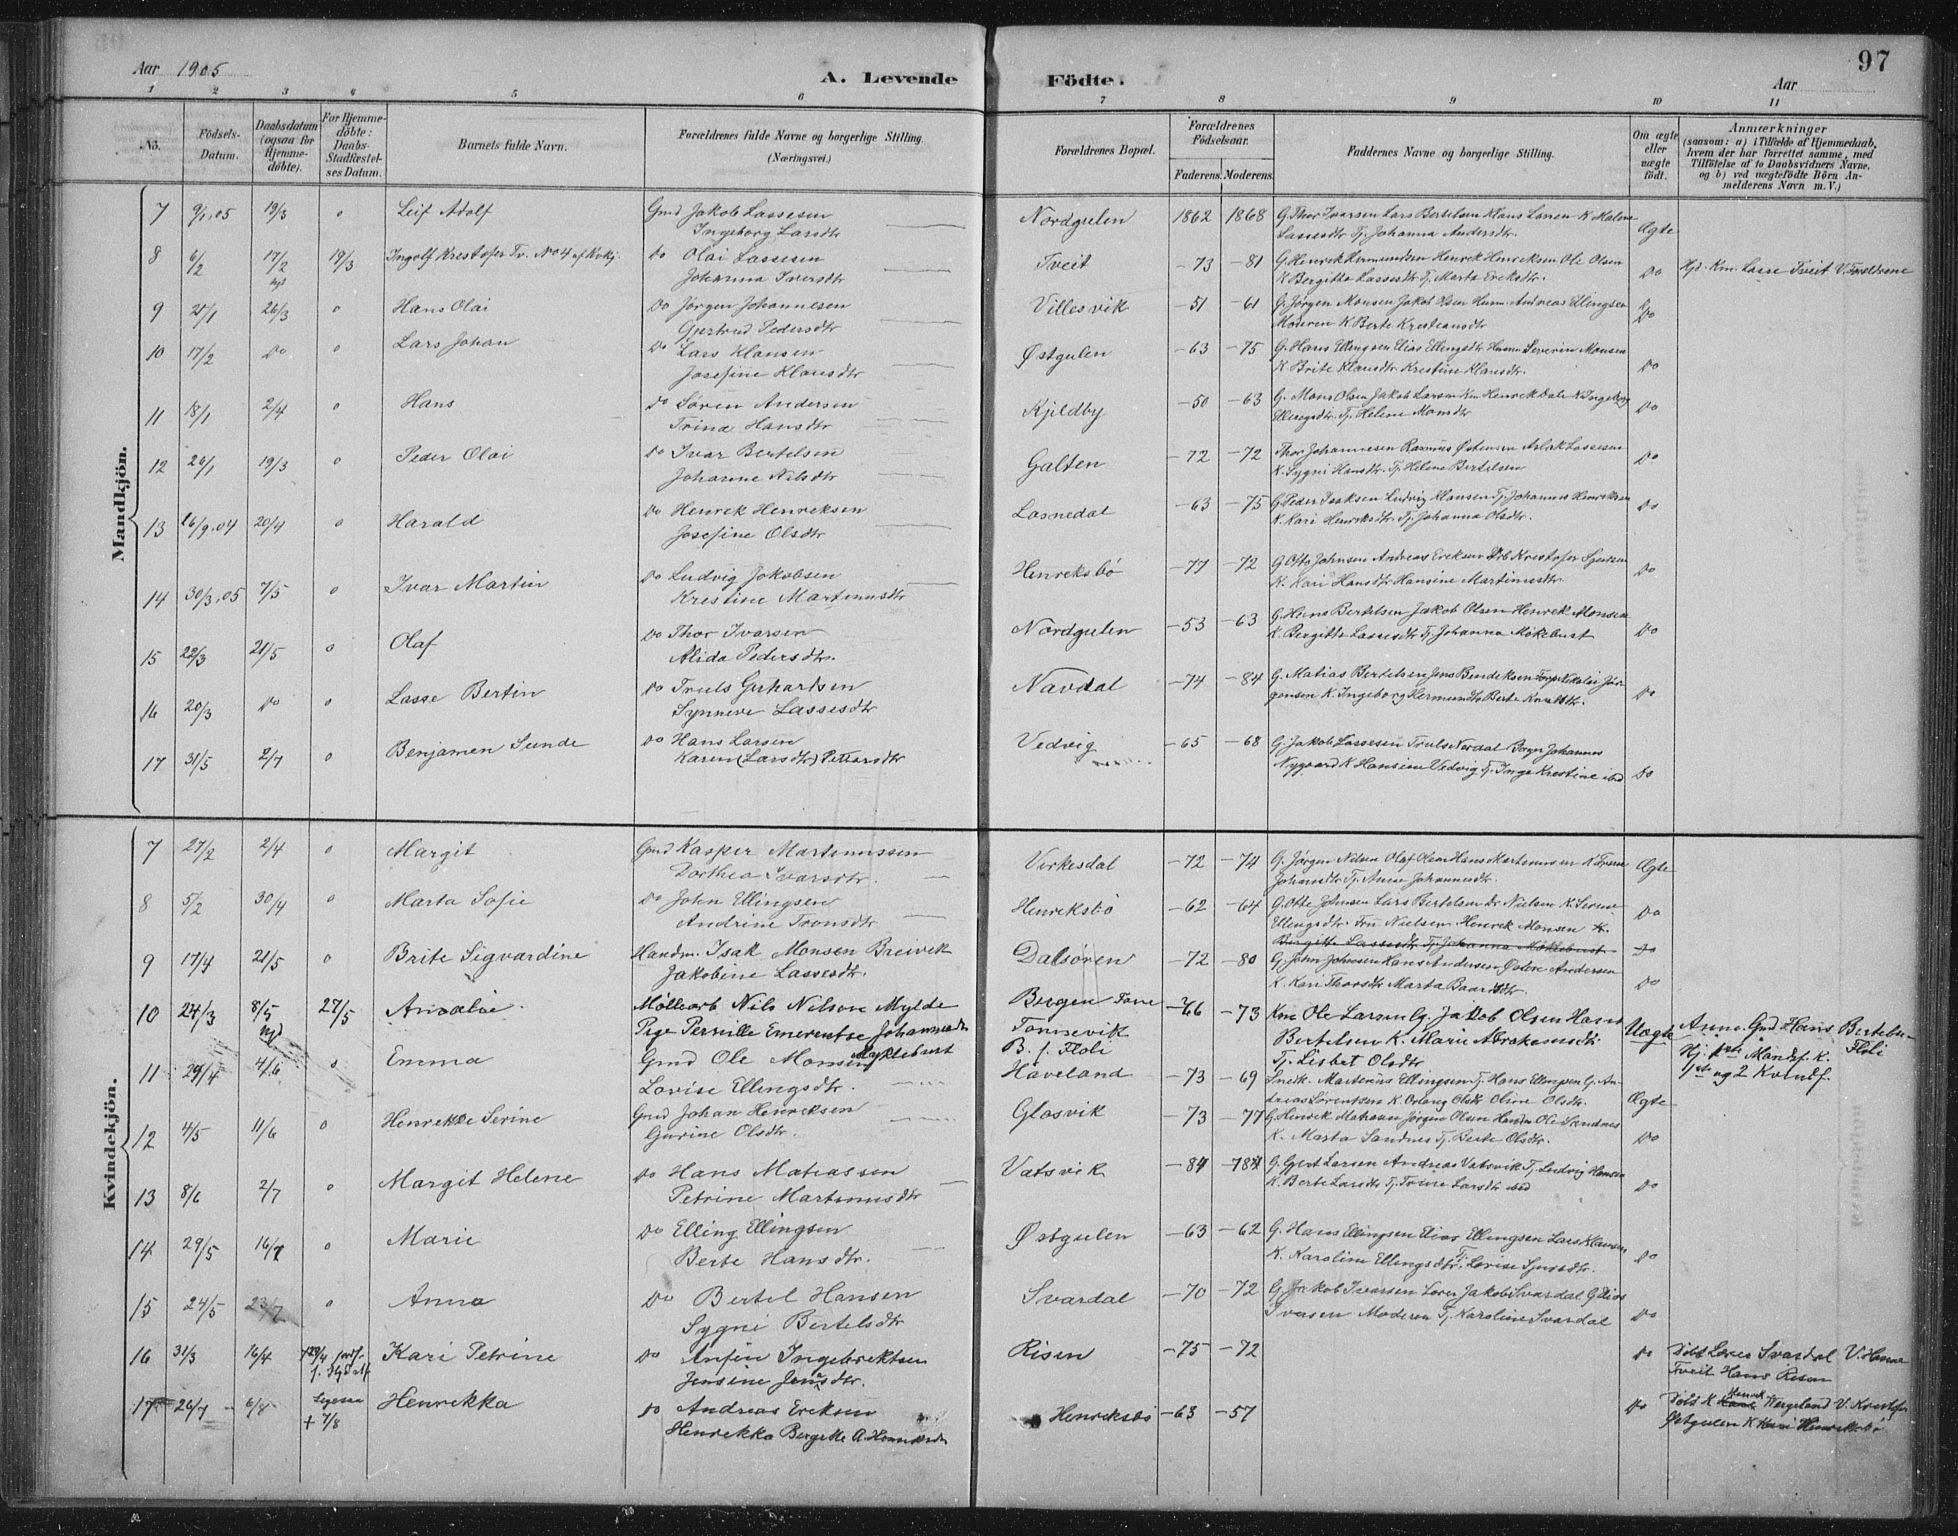 97
Aar 1905
A. Levende Födte.
Aar
1 2 3 4 5 6 7 8 9 10 11
No. Födsels-Datum. Daabsdatum (ogsaa for Hjemmedöbte). For Hjemmedöbte: Daabs-Stadfæstelses Datum. Barnets fulde Navn. Forældrenes fulde Navne og borgerlige Stilling. (Næringsvei.) Forældrenes Bopæl. Forældrenes Födselsaar. Faderens. Moderens. Faddernes Navne og borgerlige Stilling. Om ægte eller uægte födt. Anmærkninger (saasom: a) i Tilfælde af Hjemmedaab, hvem der har forrettet samme, med Tilföielse af to Daabsvidners Navne. og b) ved uægtefödte Börn Anmelderens Navn m. V.)
Mandkjön.
7 9/1.05 19/3 0 Leif Adolf Gmd Jakob Lassesen Nordgulen 1862 1868 G. Thor Ivarsen Lars Bertelsen Hans Larsen K Malene Ægte
Ingeborg Larsdtr Lassesdtr Tj. Johanna Andersdtr.
8 6/2 17/2 hjd 19/3 Ingolf Krestofer Tv. No 4 af Kvkj. Do Olai Lassesen Tveit -73 -81 G. Henrik Hermundsen Henrik Henriksen Ole Olsen Do Hjd. Km. Lasse Tveit V. Foreldrene
Johanna Iversdtr K Bergitta Lassesdtr Tj. Marta Ericksdtr.
9 21/1 26/3 0 Hans Olai Do Jörgen Johannesen Villesvik -51 -61 G. Jörgen Monsen Jakob Husm Andreas Ellingsen Do
Gjertrud Pedersdtr Moderen K Berte Krestiansdtr
10 17/2 Do 0 Lars Johan Do Lars Klausen Østgulen -63 -75 G. Hans Ellingsen Elias Ellingsdtr Husm Severin Monsen Do
Josefine Klausdtr K Brite Klausdtr Krestine Klausdtr.
11 18/1 2/4 0 Hans Do Sören Andersen Kjeldby -50 -63 G. Mons Olsen Jakob Larsen Km Henrik Dale K Ingeborg Do
Trina Hansdtr Ellingsdtr. Tj. Helene Monsdtr
12 26/1 19/3 0 Peder Olai Do Ivar Bertelsen Galten -72 -72 Thor Johannesen Rasmus Østensen Aslak Lassesen Do
Johanne Nilsdtr K. Sygni Hansdtr. Tj. Helene Bertelsen
13 16/9.04 20/4 0 Harald Do Henrik Henriksen Lasnedal -63 -75 G. Peder Isaksen Ludvig Klausen Tj. Johannes Henriksen Do
Josefine Olsdtr K. Kari Henriksdtr Tj. Johanna Olsdtr.
14 30/3.05 7/5 0 Ivar Martin Do Ludvig Jakobsen Henriksbö -77 -72 G Otto Johnsen Andreas Ericksen Krestofer Do
Krestine Martinusdtr K. Kari Hansdtr Hansine Martinusdtr.
15 22/3 21/5 0 Olaf Do Thor Ivarsen Nordgulen -53 -63 G. Hans Bertelsen Jakob Olsen Henrik Monsen Do
Alida Pedersdtr. K. Bergitta Lassesdtr Tj. Johanna Møkebust
16 20/3 Do 0 Lasse Bertin Do Truls Gerhardsen Navdal -74 -84 G. Matias Bertelsen Jens Bendiksen Nikolai Jör- Do
Synneve Lassesdtr gensen K. Ingeborg Hermundsdtr Berte Knutsdtr.
17 31/5 2/7 0 Benjamen Sunde Do Hans Larsen Vedvig -65 -68 G. Jakob Lassesen Truls Nordal Johannes Do
Karen (Larsdtr) Petersdtr Nygaard K Hansine Vedvig Tj. Inga Krestine ibd
Kvindekjön.
7 27/2 2/4 0 Margit Gmd Kasper Martinussen Virkesdal -72 -74 G. Jörgen Nilsen Olaf Olsen Hans Martinussen K Ægte
Dorthea Ivarsdtr. Johansdtr Tj. Anne Johannesdtr.
8 5/2 30/4 0 Marta Sofie Do John Ellingsen Henriksbö -62 -64 G. Otto Johnsen Lars Bertelsen Dr Nielsen K. Do
Andrine Tronsdtr Ellingsdtr. Fru Nielsen Henrik Monsen K.
Bergitte Lassesdtr Tj. Johanna Møkkebust Do
9 17/4 21/5 0 Brite Sigvardine Handm. Isak Monsen Breivik Dalsören -72 -80 G. John Johnsen Hans Andersen Østen Andersen
Jakobine Lassesdtr. K. Kari Thorsdtr Marta Baardsdtr. Do
10 24/3 8/5 hjd 27/5 Amalie. Möllearb Nils Nilsen Mylde Bergen Fane -66 -73 Km Ole Larsen G. Jakob Olsen Hans Uægte Anm. Gmd Hans Bertelsen Floli
Pige Pernille Emerentse Johannesdtr Tonnevik Bertelsen K. Marie Abrahamsdtr Hj. Mandf. K.
Myklebust B. f. Floli Tj. Lisbet Olsdtr 1ste og 2 Kvindf.
11 29/4 4/6 0 Emma Gmd Ole Monsen Haveland -73 -69 Snedk. Martinus Ellingsen Tj. Hans Ellingsen G. An-
Lovise Ellingsdtr. dreas Lorentsen K. Olsdtr Oline Olsdtr. Ægte
12 4/5 11/6 0 Henrikke Serine Gmd Johan Henriksen Glosvik -73 -77 G. Henrik Jörgen Olsen Ole Sandnes
Gurine Olsdtr. K. Marta Sandnes Tj. Berte Olsdtr. Do
13 8/6 2/7 0 Margit Helene Do Hans Matiassen Vatsvik -84 G. Gjert Larsen Andreas Vatsvik Tj. Ludvig Hansen
Petrine Martinusdtr K. Berte Larsdtr Tj. Trine Larsdtr ibd Do
14 29/5 16/7 0 Marie Do Elling Ellingsen Østgulen -63 -62 G. Hans Ellingsen Elias Ellingsen Lars Klausen
Berte Hansdtr. K. Karoline Ellingsdtr Tj. Lovise Do
15 24/5 23/7 0 Anna Do Bertel Hansen Svardal -70 -72 G. Jakob Ivarsen Jakob Svardal G Elias
Sygni Bertelsdtr Iversen Moderen Tj. Karoline Svardal Do
16 31/3 16/4 Kari Petrine Do Anfin Ingebriktsen Risen -75 -72 Do Döbt Svardal V. Hanna
Jensine Jensdtr. Tveit Hans Risen
17 26/7 6/8 + 7/8 Henrikka Do Andreas Ericksen Henriksbö -63 -57 Do Döbt K Henrik Wergeland V. Krestofer
Henrikka Bergitte A. Henriksdtr Østgulen K Kari Henriksbö